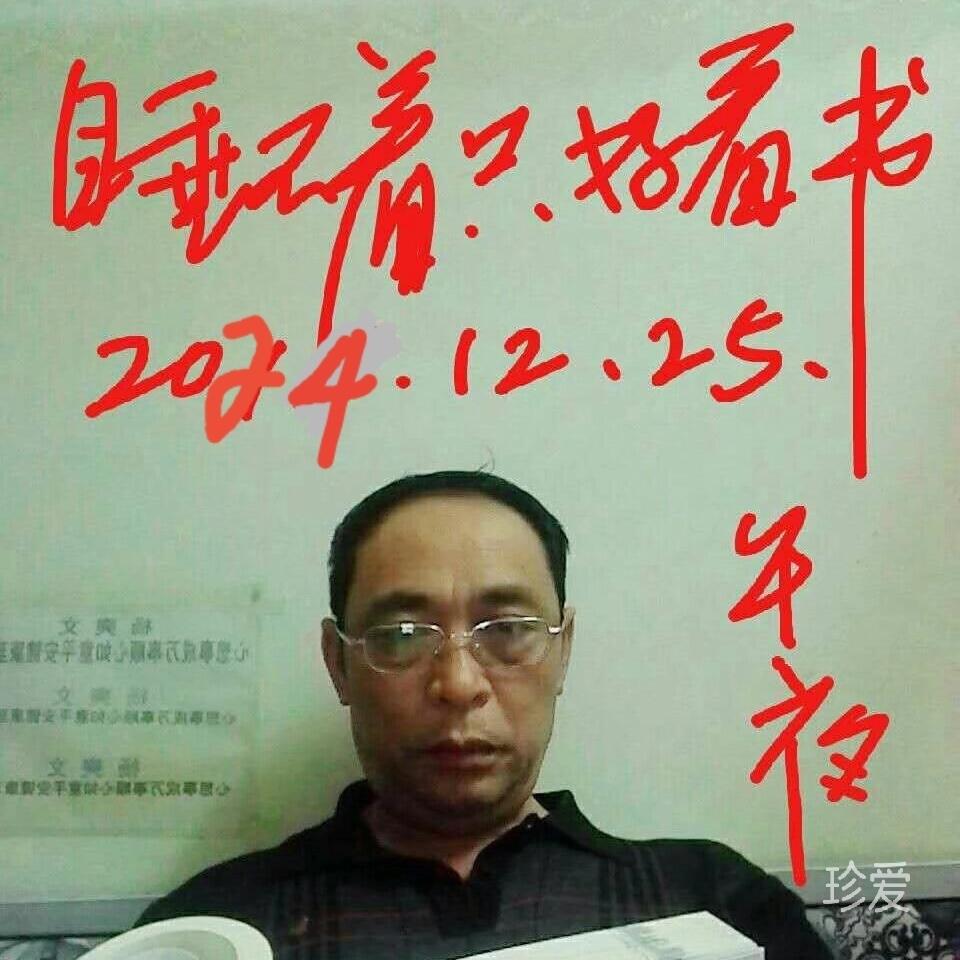 睡不着只好看书
2024.12.25.
午夜
心想事成万事顺心如意平安健康
心想事成万事顺心如意平安健康
心想事成万事顺心如意平安健康
珍爱